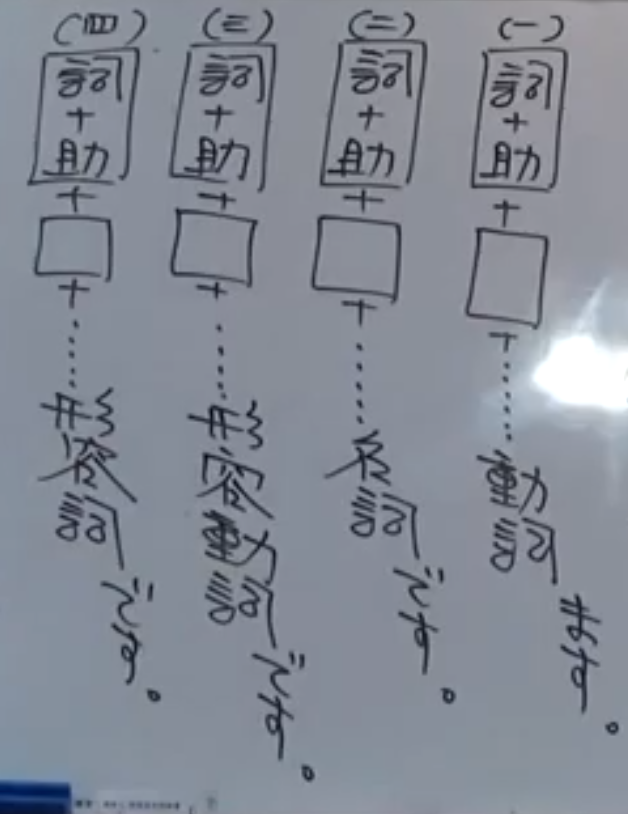 (一) 詞+助+□+……動詞ます。
(二) 詞+助+□+……名詞です。
(三) 詞+助+□+……形容動詞です。
(四) 詞+助+□+……形容詞です。